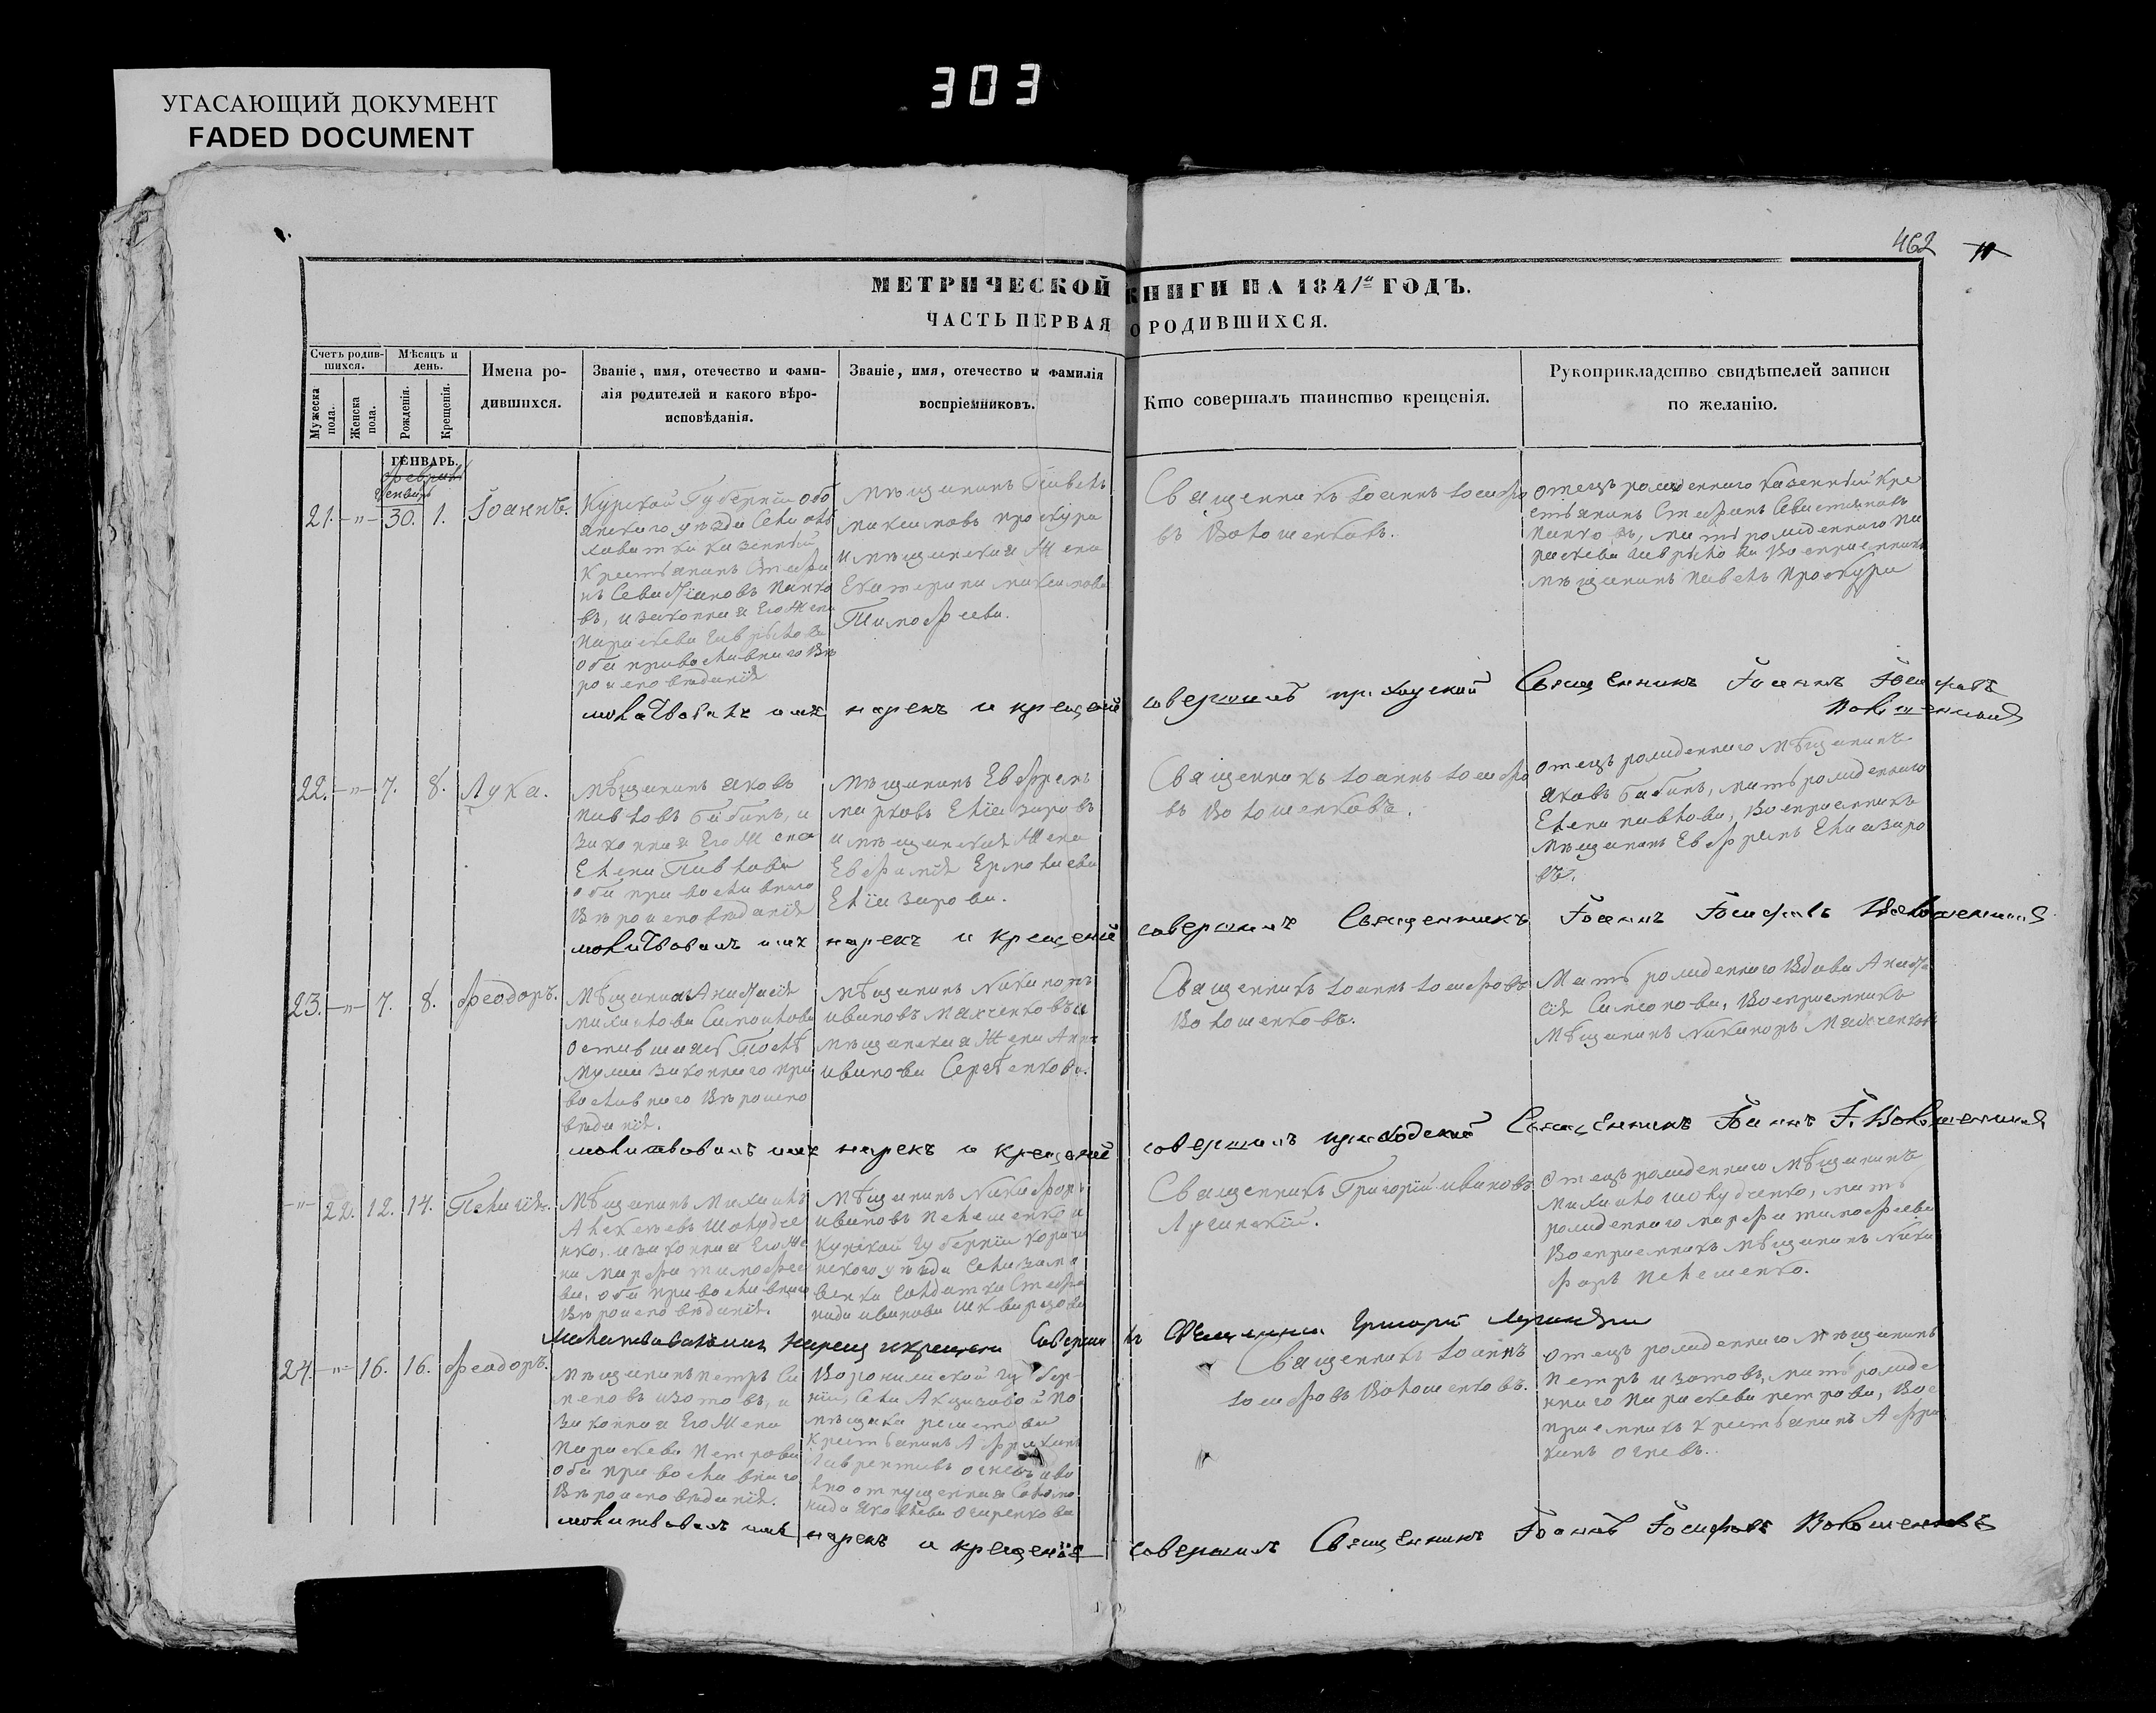 303
УГАСАЮЩИЙ ДОКУМЕНТ
FADED DOCUMENT
462
11
МЕТРИЧЕСКОЙ КНИГИ НА 1841й ГОДЪ.
ЧАСТЬ ПЕРВАЯ О РОДИВШИХСЯ.
Счетъ родив-
шихся.
Мѣсяцъ и
день.
Мужеска
пола.
Женска
пола.
Рожденія.
Крещенія.
Имена ро-
дившихся.
Званіе, имя, отечество и фами-
лія родителей и какого вѣро-
исповѣданія.
Званіе, имя, отечество и фамилія
воспріемниковъ.
Кто совершалъ таинство крещенія.
Рукоприкладство свидѣтелей записи
по желанію.
ГЕНВАРЬ.
Генварь
21. -„- 30. 1. Іоаннъ.
Курской Губерніи Обо
янского уѣзда Села
казенный
Крестьянинъ Стефа
нъ Севастіановъ Панко
въ, и законная Его Жена
Параскева Гаврилова
оба православнаго Вѣ
роисповѣданія
Мѣщанинъ Павелъ
Максимовъ Проскура
и мѣщанская Жена
Екатерина Максимова
Тимофеева.
Священникъ Іоаннъ Іосифо
въ Волошенковъ.
отецъ рожденнаго казенный Кре
стьянинъ Стефанъ Севастіановъ
Панковъ, мать рожденнаго Па
раскева Гаврилова Воспріемникъ
мѣщанинъ Павелъ Проскура
молитвовалъ имя нарекъ и крещеніе совершилъ приходской Священникъ Іоаннъ Іосифовъ
22. -„- 7. 8. Лука.
Мѣщанинъ Яковъ
Павловъ Бабинъ, и
законная Его Жена
Елена Павлова
оба православнаго
Вѣроисповѣданія
Мѣщанинъ Евфремъ
Марковъ Еліазаровъ
и мѣщанская Жена
Евфимія Ермолаева
Еліазарова.
Священникъ Іоаннъ Іосифо
въ Волошенковъ.
отецъ рожденнаго Мѣщанинъ
Яковъ Бабинъ, мать рожденнаго
Елена Павлова, Воспріемникъ
Мѣщанинъ Евфремъ Елиазаро
въ.
молитвовалъ имя нарекъ и крещеніе совершилъ Священникъ Іоаннъ Іосифовъ
23. -„- 7. 8. Феодоръ.
Мѣщанка Анастасія
Михайлова
оставшаясь Послѣ
Мужа законнаго пра
вославнаго Вѣроиспо
вѣданія.
Мѣщанинъ Никаноръ
Ивановъ Махченковъ и
мѣщанская Жена Анна
Иванова
Священникъ Іоаннъ Іосифовъ
Волошенковъ.
Мать рожденнаго Вдова Анаста
сія Симонова, Воспріемникъ
Мѣщанинъ Никаноръ Махченковъ
молитвовалъ имя нарекъ и крещеніе совершилъ приходской Священникъ Іоаннъ І.
-„- 22. 12. 14. Пелагія.
Мѣщанинъ Михаилъ
Алексеевъ Шолудче
нко, и законная Его Же
на Марфа Тимофее
ва, оба православнаго
Вѣроисповѣданія.
Мѣщанинъ Никифоръ
Ивановъ Пелешенко и
Курской Губерніи Корочан
ского уѣзда
солдатка Стефа
нида Иванова
Священникъ Григорій Ивановъ
Лугинскій.
Отецъ рожденнаго Мѣщанинъ
Михаилъ Шолудченко, мать
рожденнаго Марфа Тимофеева
Воспріемникъ Мѣщанинъ Ники
форъ Пелешенко.
24. -„- 16. 16. Феодоръ.
Мѣщанинъ Петръ Си
меновъ Изотовъ, и
законная Его Жена
Параскева Петрова
оба православнаго
Вѣроисповѣданія.
Воронежской Губер-
ніи, Села
мѣщика
Крестьянинъ Африканъ
Священникъ Іоаннъ
Іосифовъ Волошенковъ.
отецъ рожденнаго Мѣщанинъ
Петръ Изотовъ, мать рожде
ннаго Параскева Петрова, Вос
пріемникъ Крестьянинъ Афри
канъ Огневъ.
молитвовалъ имя нарекъ и крещеніе совершилъ Священникъ Іоаннъ Іосифовъ Волошенковъ